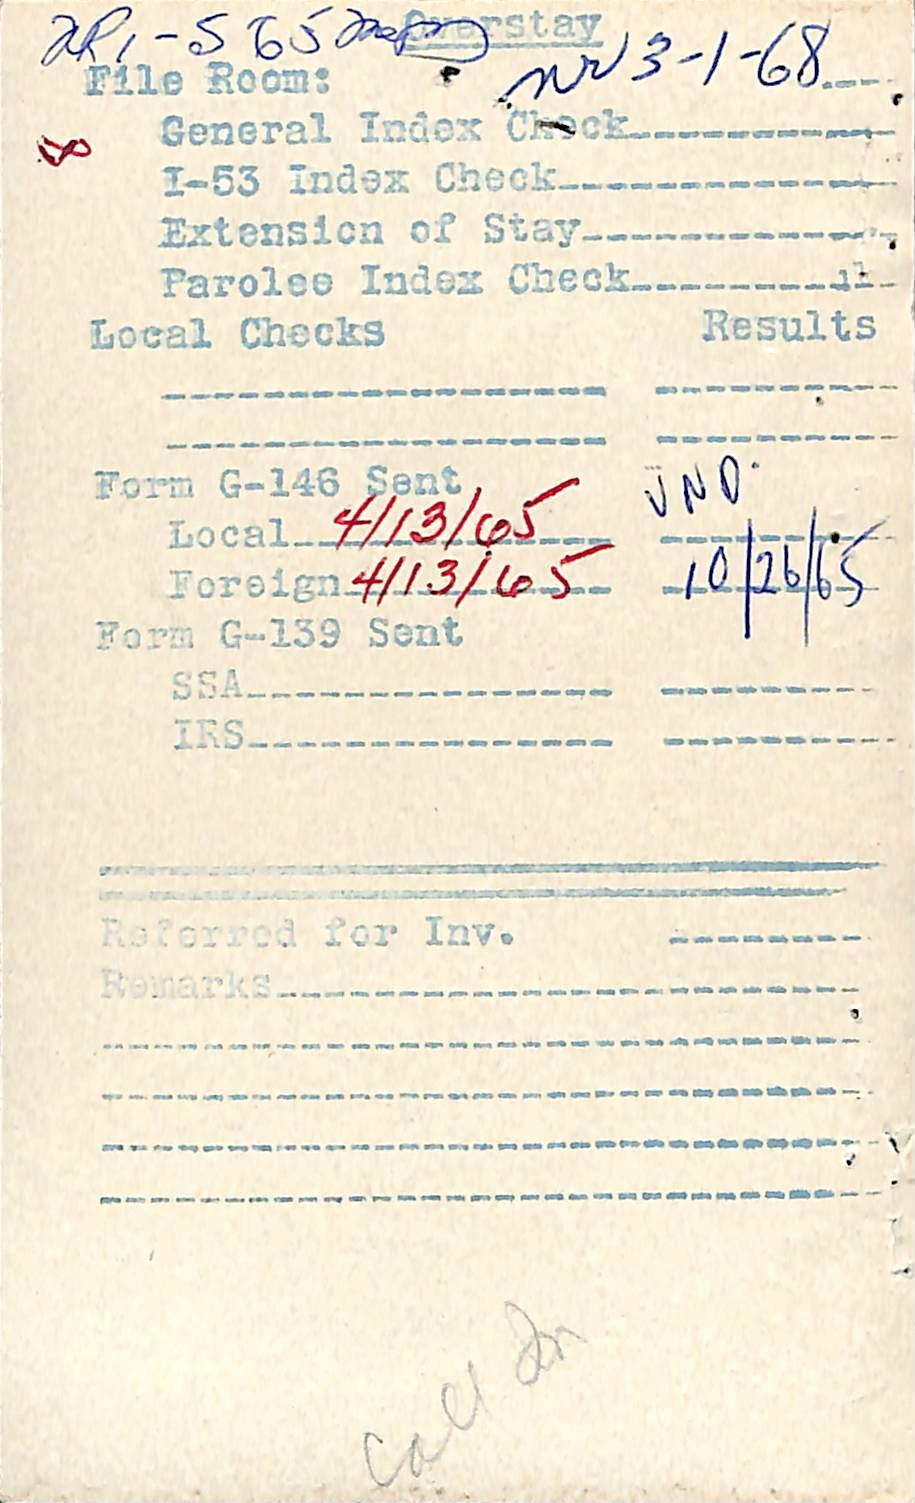 Overstay
NR 3-1-68
File Room:
General Index Check
I-53 Index Check
Extension of Stay
Parolee Index Check
Local Checks Results
Form G-146 Sent UND
Local 4/13/65
Foreign 4/13/65 10/26/65
Form G-139 Sent
SSA
IRS
Referred for Inv.
Remarks
Call In